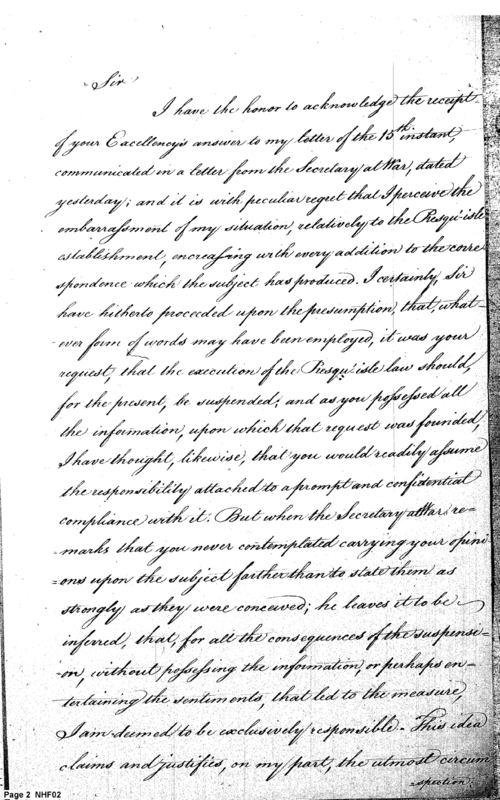 Sir
I have the honor to acknowledge the receipt
of your Excellency's answer to my letter of the 15th instant,
communicated in a letter from the Secretary at War, dated
yesterday; and it is with peculiar regret that I perceive the
embarrassment of my situation, relatively to the Presqu'isle
establishment, encreasing with every addition to the corre
spondence which the subject has produced. I certainly, Sir
have hitherto proceeded upon the presumption, that, what-
-ever form of words may have been employed, it was your
request, that the execution of the Presqu'isle law should,
for the present, be suspended; and as you possessed all
the information, upon which that request was founded,
I have thought, likewise, that you would readily assume
the responsibility attached to a prompt and confidential
compliance with it. But when the Secretary at War re-
-marks that you never contemplated carrying your opini
-ons upon the subject farther than to state them as
strongly as they were conceived; he leaves it to be
inferred, that, for all the consequences of the suspensi-
-on, without possessing the information, or perhaps en-
-tertaining the sentiments, that led to the measure,
I am deemed to be exclusively responsible. This idea
claims and justifies, on my part, the utmost circum
-spection.
Page 2 NHF02